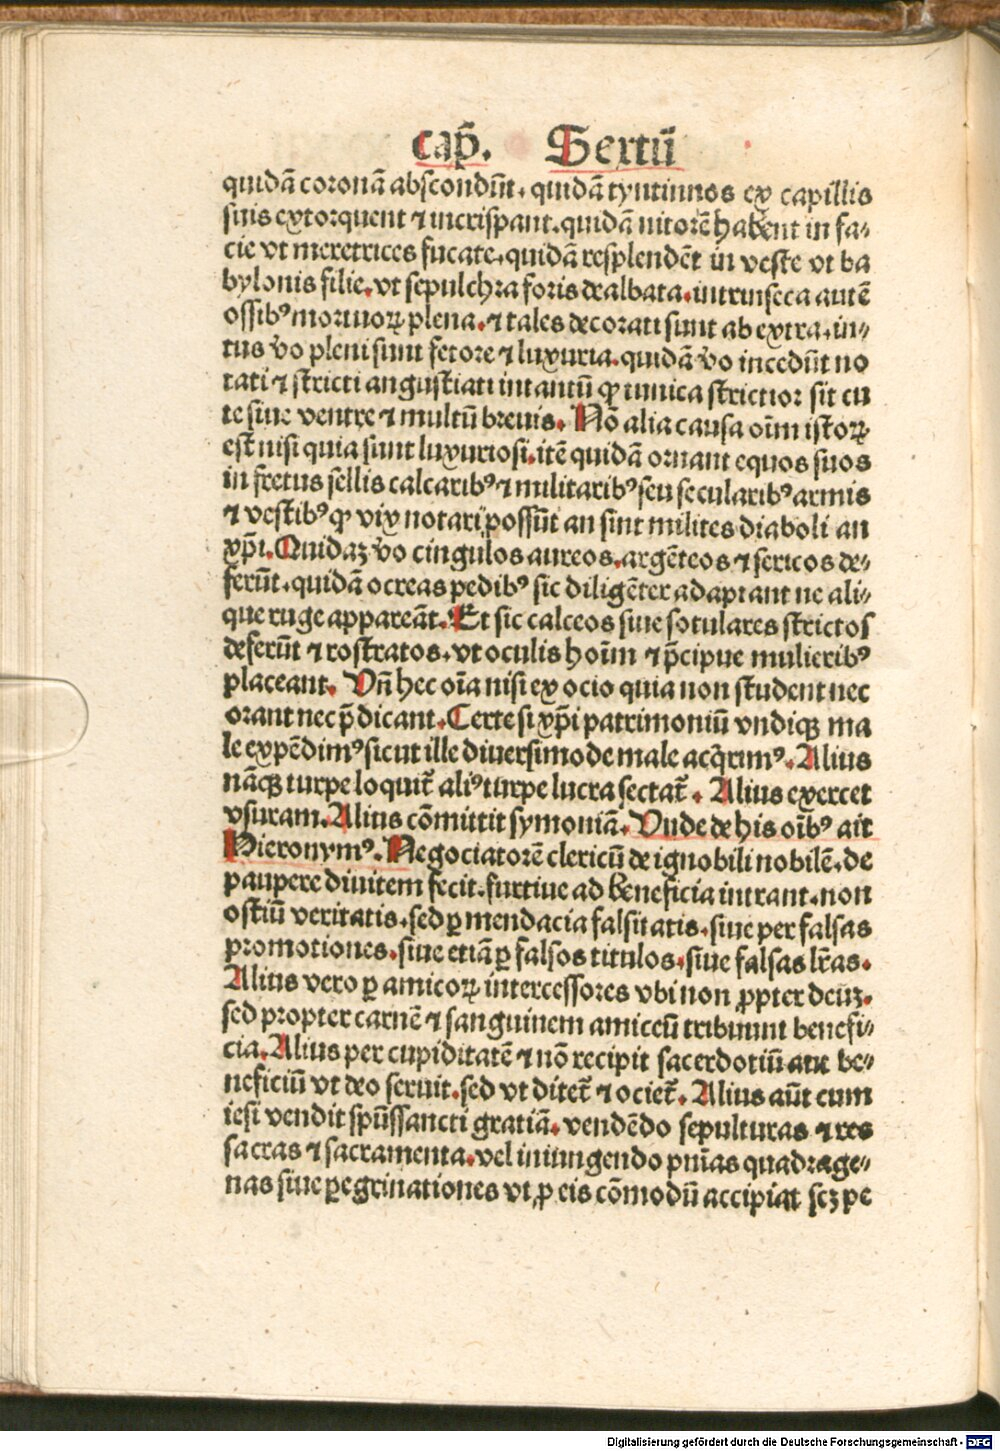 Cap̃. Sextũ
quidã coronã abscondũt. quidã tyntinnos ex capillis
suis extorquent ⁊ incrispant. quidã nitorẽ habent in fa⸗
cie vt meretrices fucate. quidã resplendẽt in veste vt ba
bylonis filie. vt sepulchra foris dealbata. intrinseca autẽ
ossibꝰ mortuoꝝ plena. ⁊ tales decorati sunt ab extra. in⸗
tus v̓o pleni sunt fetore ⁊ luxuria. quidã v̓o incedũt no
tati ⁊ stricti angustiati intantũ ꝙ tunica strictior sit cu
te siue ventre ⁊ multũ breuis. Nõ alia causa oĩm istoꝝ
est nisi quia sunt luxuriosi. itẽ quidã ornant equos suos
in fretus sellis calcaribꝰ ⁊ militaribꝰ seu secularibꝰ armis
⁊ vestibꝰ ꝙ vix notari possũt an sint milites diaboli an
xp̃i. Quidaꝫ v̓o cingulos aureos. argẽteos ⁊ sericos de⸗
ferũt. quidã ocreas pedibꝰ sic diligẽter adaptant ne ali⸗
que ruge appareãt. Et sic calceos siue sotulares strictos
deferũt ⁊ rostratos. vt oculis hoĩm ⁊ p̃cipue mulieribꝰ
placeant. Vñ hec oĩa nisi ex ocio quia non student nec
orant nec p̃dicant. Certe si xp̃i patrimoniũ vndiqꝫ ma
le expẽdimꝰ sicut ille diuersimode male acq̃rimꝰ. Alius
nãqꝫ turpe loquit᷑ aliꝰ turpe lucra sectat᷑. Alius exercet
vsuram. Alius cõmittit symoniã. Vnde de his oĩbꝰ ait
Hieronymꝰ. Negociatorẽ clericũ de ignobili nobilẽ. de
paupere diuitem fecit. furtiue ad beneficia intrant. non
ostiũ veritatis. sed ꝑ mendacia falsitatis. siue per falsas
promotiones. siue etiã ꝑ falsos titulos. siue falsas lr̃as.
Alius vero ꝑ amicoꝝ intercessores vbi non ꝓpter deuꝫ.
sed propter carnẽ ⁊ sanguinem amiceũ tribuunt benefi⸗
cia. Alius per cupiditatẽ ⁊ nõ recipit sacerdotiũ aut be⸗
neficiũ vt deo seruit. sed vt ditet᷑ ⁊ ociet᷑. Alius aũt cum
iesi vendit spũssancti gratiã. vendẽdo sepulturas ⁊ res
sacras ⁊ sacramenta. vel iniungendo pñias quadrage⸗
nas siue ꝑegrinationes vt ꝓ eis cõmodũ accipiat scꝫ pe
Digitalisierung gefördert durch die Deutsche Forschungsgemeinschaft - DFG